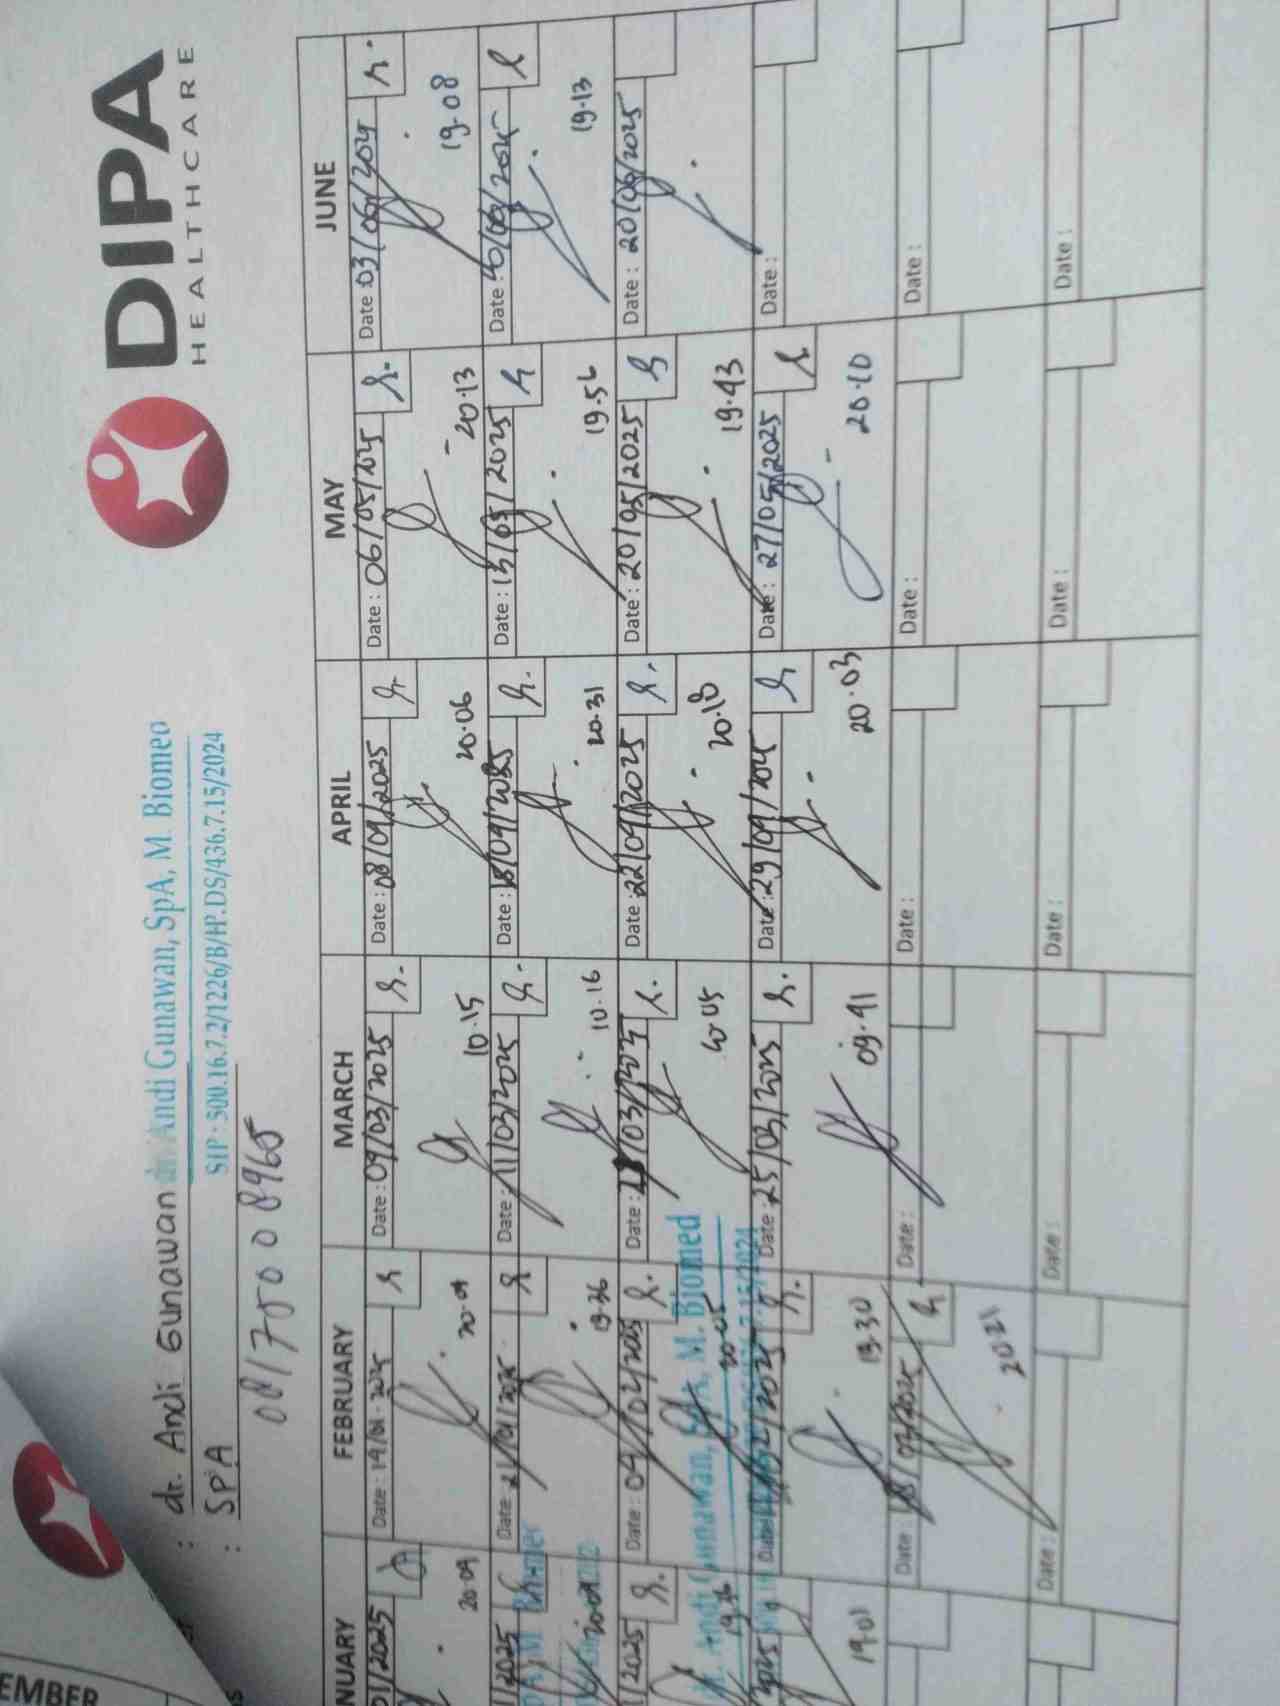 DIPA
HEALTHCARE
: dr. Andi Gunawan dr. Andi Gunawan, SpA, M. Biomed
SIP : 500.16.7.2/1226/B/IP.DS/436.7.15/2024
: SPA
081750008965
EMBER
NUARY FEBRUARY MARCH APRIL MAY JUNE
01/2025 Date : 14/01-2025 Date : 04/03/2025 Date : 08/04/2025 Date : 06/05/2025 Date : 03/06/2025
20.09 20.09 10.15 20.06 20.13 19.08
/2025 Date : 21/01/2025 Date : 11/03/2025 Date : Date : 13/05/2025 Date : 10/06/2025
19.36 10.16 20.31 19.56 19.13
/2025 Date : 04/02/2025 Date : /03/2025 Date : 22/04/2025 Date : 20/05/2025 Date : 20/06/2025
dr. Andi Gunawan, SpA, M. Biomed
19.36 20.05 20.05 20.18 19.43
2025 Date : Date : 25/03/2025 Date : 29/04/2025 Date : 27/05/2025 Date :
19.01 19.30 09.41 20.03 20.10
Date : Date : Date : Date : Date :
20.21
Date : Date : Date : Date : Date :